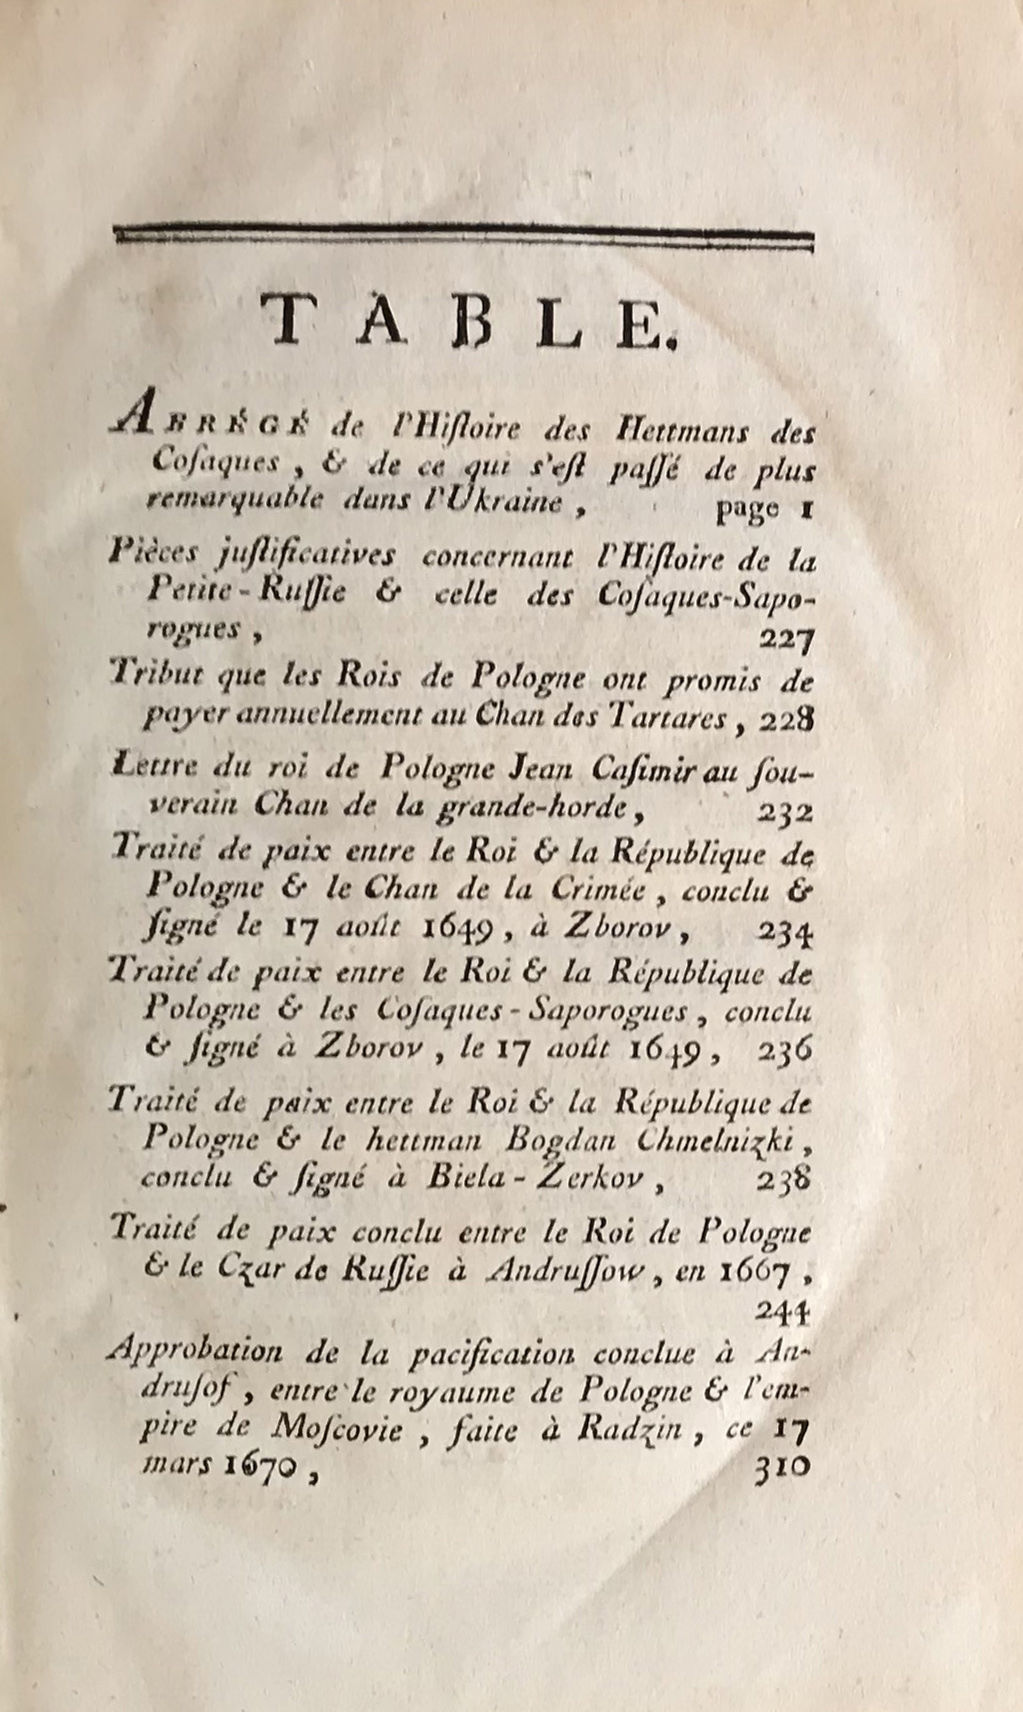 TABLE.
ABRÉGÉ de l'Hiſtoire des Hettmans des
Coſaques , & de ce qui s'eſt paſſé de plus
remarquable dans l'Ukraine , page 1
Pièces juſtificatives concernant l'Hiſtoire de la
Petite-Ruſſie & celle des Coſaques-Sapo-
rogues , 227
Tribut que les Rois de Pologne ont promis de
payer annuellement au Chan des Tartares , 228
Lettre du roi de Pologne Jean Caſimir au ſou-
verain Chan de la grande-horde , 232
Traité de paix entre le Roi & la République de
Pologne & le Chan de la Crimée , conclu &
ſigné le 17 août 1649 , à Zborov , 234
Traité de paix entre le Roi & la République de
Pologne & les Coſaques-Saporogues , conclu
& ſigné à Zborov , le 17 août 1649 , 236
Traité de paix entre le Roi & la République de
Pologne & le hettman Bogdan Chmelnizki ,
conclu & ſigné à Biela-Zerkov , 238
Traité de paix conclu entre le Roi de Pologne
& le Czar de Ruſſie à Andruſſow , en 1667 ,
244
Approbation de la pacification conclue à An-
druſof , entre le royaume de Pologne & l'em-
pire de Moſcovie , faite à Radzin , ce 17
mars 1670 , 310